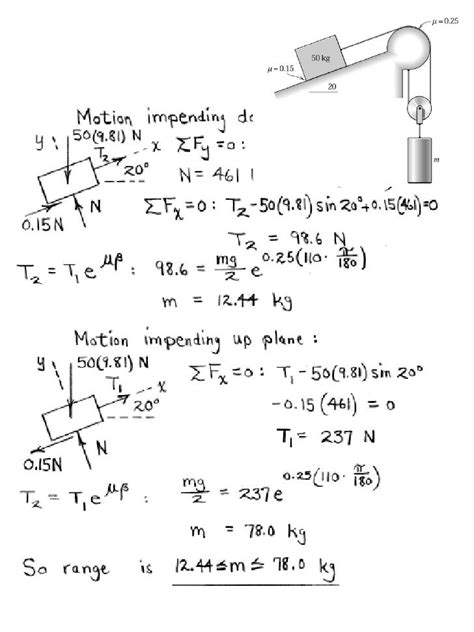 μ=0.25
50 kg
μ=0.15
20
m
Motion impending
50(9.81) N
y
T₂
x
20°
N
0.15N
ΣFy=0:
N = 461
ΣFx=0: T₂-50(9.81) sin 20°+0.15(461)=0
T₂ = 98.6 N
T₂ = T₁e^μβ : 98.6 = mg/2 e^0.25(110·π/180)
m = 12.44 kg
Motion impending up plane :
50(9.81) N
y
T₁
x
20°
N
0.15N
ΣFx=0: T₁-50(9.81) sin 20°
-0.15(461) = 0
T₁ = 237 N
T₂ = T₁e^μβ : mg/2 = 237e^0.25(110·π/180)
m = 78.0 kg
So range is 12.44≤m≤ 78.0 kg